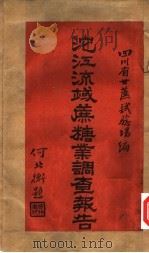 四川省甘蔗試驗場編
沱江流域蔗糖業調查報告
何北衡題
mtoou.info